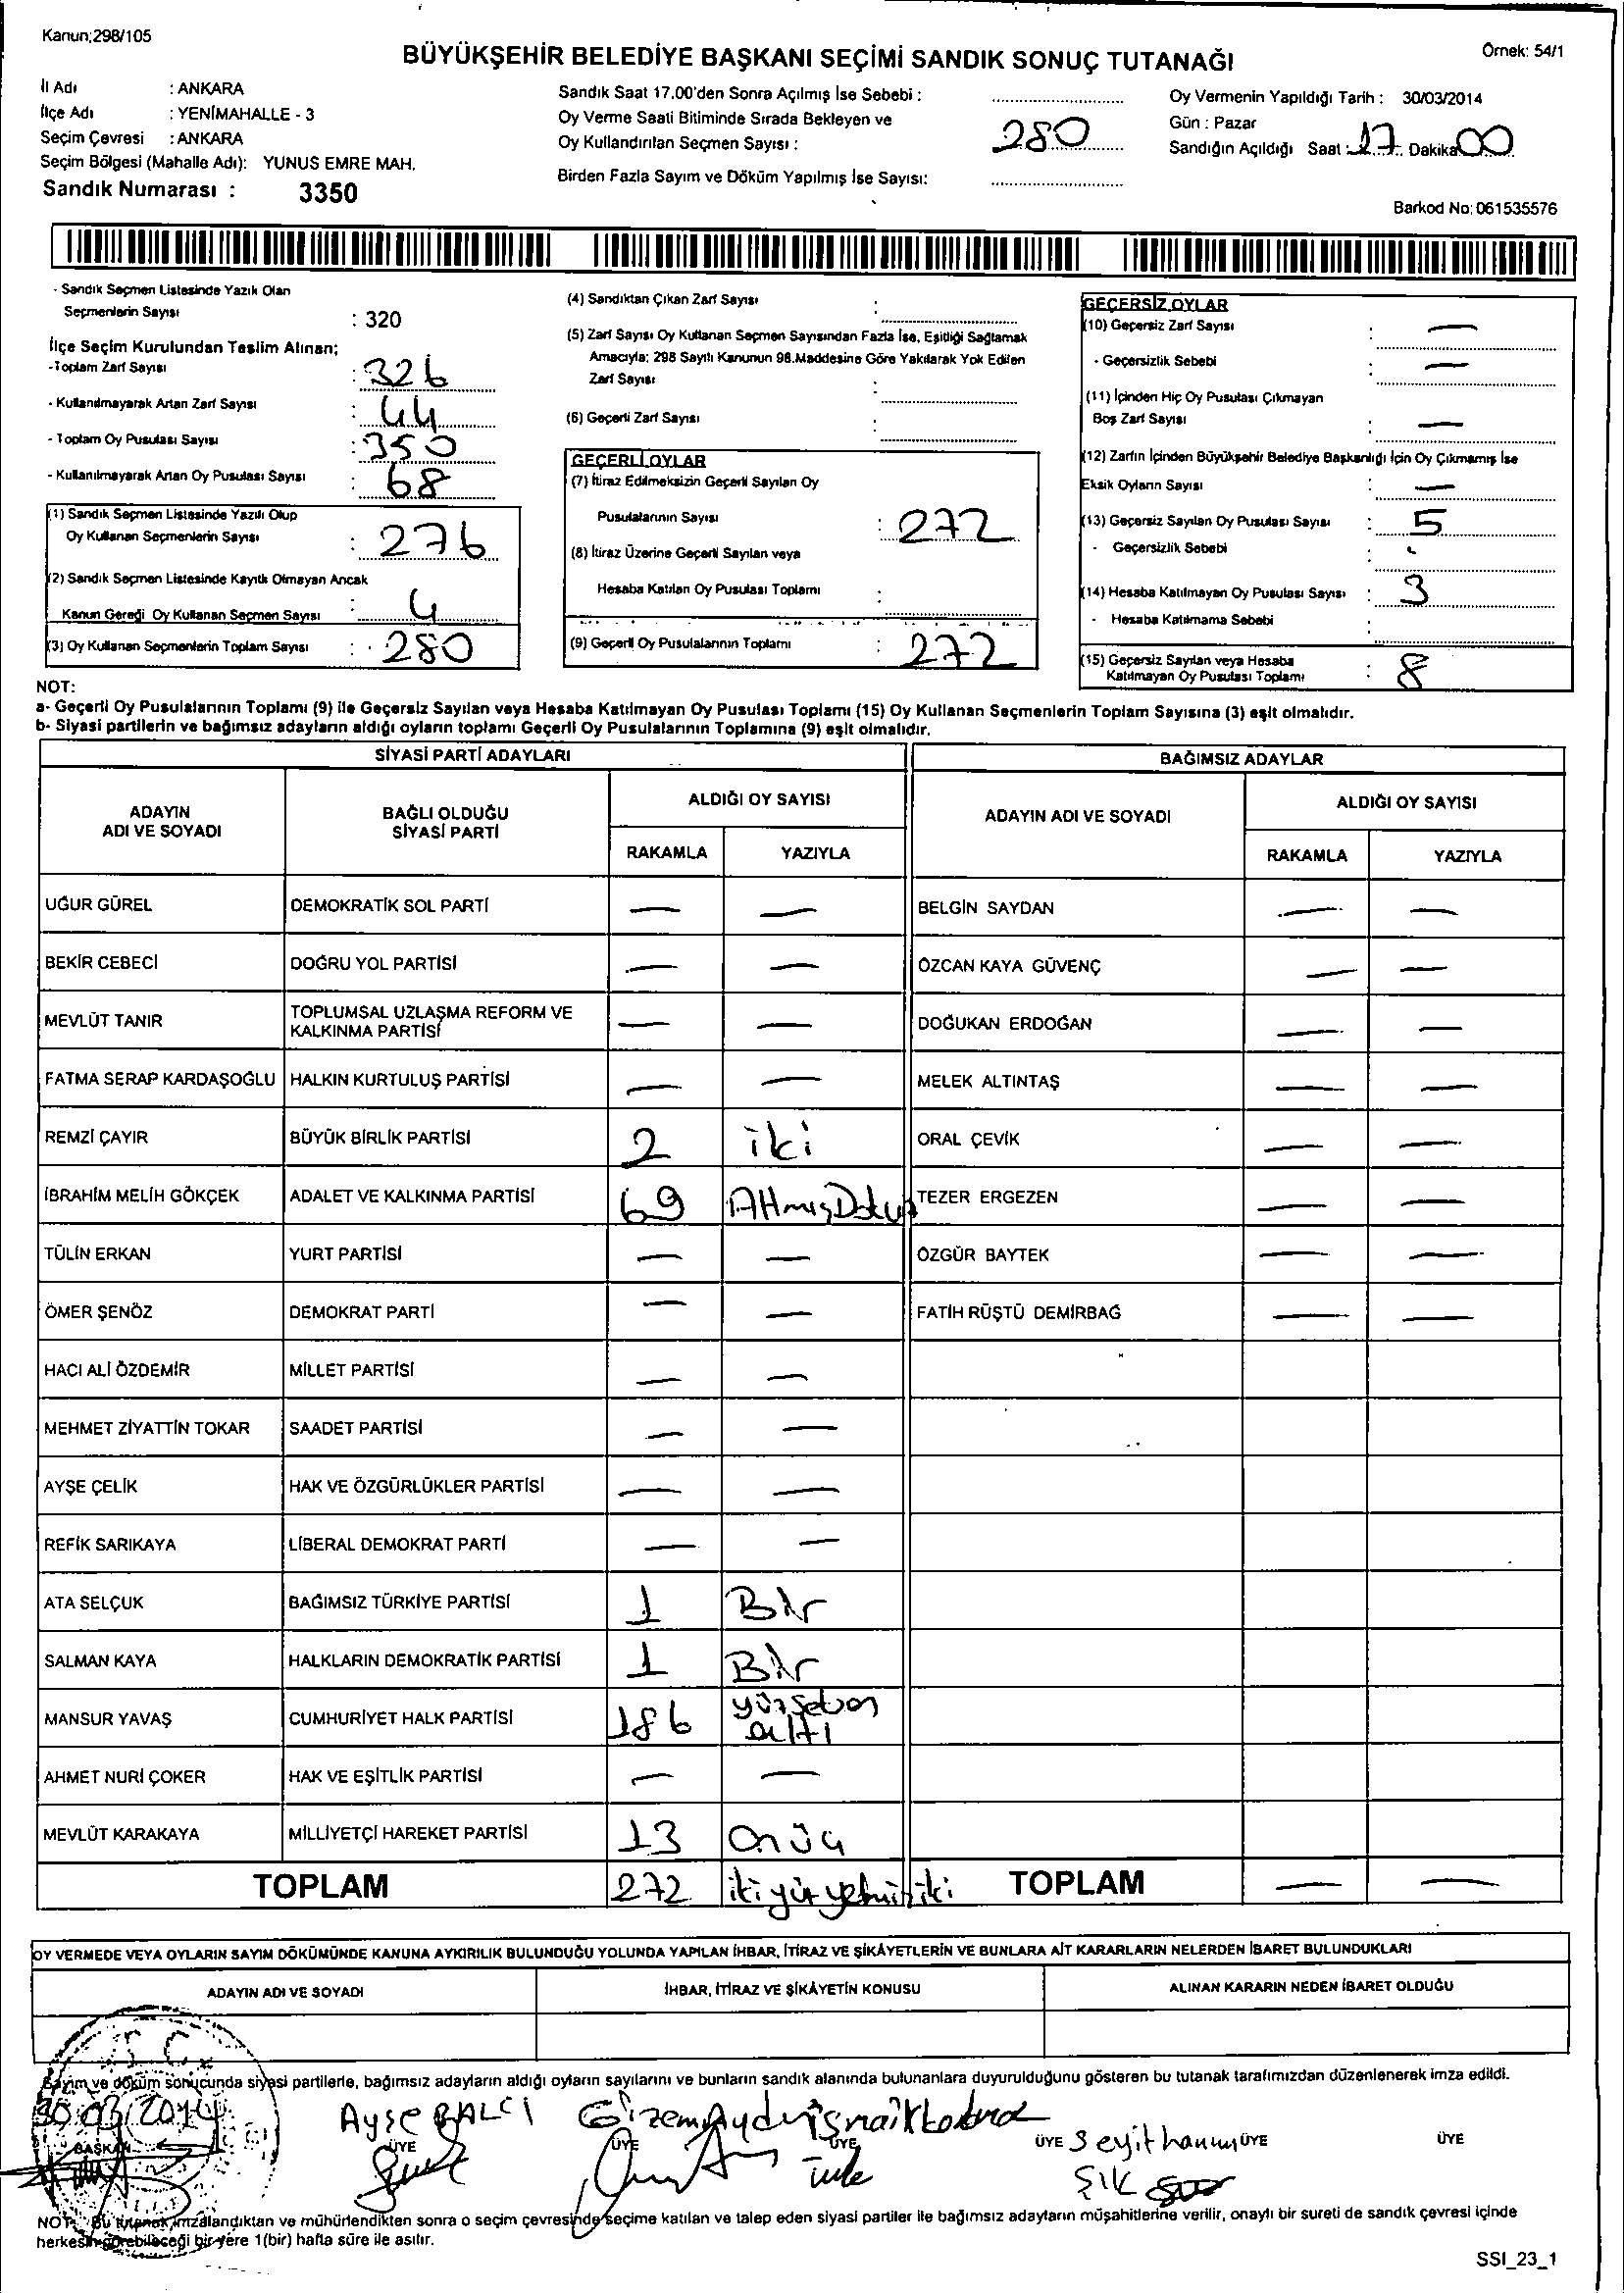 Kanun;298/105
BÜYÜKŞEHİR BELEDİYE BAŞKANI SEÇİMİ SANDIK SONUÇ TUTANAĞI
Örnek: 54/1
İl Adı : ANKARA
İlçe Adı : YENİMAHALLE - 3
Seçim Çevresi : ANKARA
Seçim Bölgesi (Mahalle Adı): YUNUS EMRE MAH.
Sandık Numarası : 3350
Sandık Saat 17.00'den Sonra Açılmış İse Sebebi :
Oy Verme Saati Bitiminde Sırada Bekleyen ve
Oy Kullandırılan Seçmen Sayısı : 280
Birden Fazla Sayım ve Döküm Yapılmış İse Sayısı:
Oy Vermenin Yapıldığı Tarih : 30/03/2014
Gün : Pazar
Sandığın Açıldığı Saat : 17 Dakika 00
Barkod No: 061535576
- Sandık Seçmen Listesinde Yazılı Olan
Seçmenlerin Sayısı : 320
İlçe Seçim Kurulundan Teslim Alınan;
-Toplam Zarf Sayısı : 326
- Kullanılmayarak Artan Zarf Sayısı : 44
- Toplam Oy Pusulası Sayısı : 350
- Kullanılmayarak Artan Oy Pusulası Sayısı : 68
(1) Sandık Seçmen Listesinde Yazılı Olup
Oy Kullanan Seçmenlerin Sayısı : 276
(2) Sandık Seçmen Listesinde Kayıtlı Olmayan Ancak
Kanun Gereği Oy Kullanan Seçmen Sayısı : 4
(3) Oy Kullanan Seçmenlerin Toplam Sayısı : 280
(4) Sandıktan Çıkan Zarf Sayısı :
(5) Zarf Sayısı Oy Kullanan Seçmen Sayısından Fazla İse, Eşitliği Sağlamak
Amacıyla; 298 Sayılı Kanunun 98.Maddesine Göre Yakılarak Yok Edilen
Zarf Sayısı :
(6) Geçerli Zarf Sayısı :
GEÇERLİ OYLAR
(7) İtiraz Edilmeksizin Geçerli Sayılan Oy
Pusulalarının Sayısı : 272
(8) İtiraz Üzerine Geçerli Sayılan veya
Hesaba Katılan Oy Pusulası Toplamı :
(9) Geçerli Oy Pusulalarının Toplamı : 272
GEÇERSİZ OYLAR
(10) Geçersiz Zarf Sayısı : —
- Geçersizlik Sebebi : —
(11) İçinden Hiç Oy Pusulası Çıkmayan
Boş Zarf Sayısı : —
(12) Zarfın İçinden Büyükşehir Belediye Başkanlığı İçin Oy Çıkmamış İse
Eksik Oyların Sayısı : —
(13) Geçersiz Sayılan Oy Pusulası Sayısı : 5
- Geçersizlik Sebebi :
(14) Hesaba Katılmayan Oy Pusulası Sayısı : 3
- Hesaba Katılmama Sebebi :
(15) Geçersiz Sayılan veya Hesaba
Katılmayan Oy Pusulası Toplamı : 8
NOT:
a- Geçerli Oy Pusulalarının Toplamı (9) ile Geçersiz Sayılan veya Hesaba Katılmayan Oy Pusulası Toplamı (15) Oy Kullanan Seçmenlerin Toplam Sayısına (3) eşit olmalıdır.
b- Siyasi partilerin ve bağımsız adayların aldığı oyların toplamı Geçerli Oy Pusulalarının Toplamına (9) eşit olmalıdır.
SİYASİ PARTİ ADAYLARI
BAĞIMSIZ ADAYLAR
ADAYIN ADI VE SOYADI
BAĞLI OLDUĞU SİYASİ PARTİ
ALDIĞI OY SAYISI
RAKAMLA YAZIYLA
ADAYIN ADI VE SOYADI
ALDIĞI OY SAYISI
RAKAMLA YAZIYLA
UĞUR GÜREL DEMOKRATİK SOL PARTİ — — BELGİN SAYDAN — —
BEKİR CEBECİ DOĞRU YOL PARTİSİ — — ÖZCAN KAYA GÜVENÇ — —
MEVLÜT TANIR TOPLUMSAL UZLAŞMA REFORM VE KALKINMA PARTİSİ — — DOĞUKAN ERDOĞAN — —
FATMA SERAP KARDAŞOĞLU HALKIN KURTULUŞ PARTİSİ — — MELEK ALTINTAŞ — —
REMZİ ÇAYIR BÜYÜK BİRLİK PARTİSİ 2 iki ORAL ÇEVİK — —
İBRAHİM MELİH GÖKÇEK ADALET VE KALKINMA PARTİSİ 69 AltmışDokuz TEZER ERGEZEN — —
TÜLİN ERKAN YURT PARTİSİ — — ÖZGÜR BAYTEK — —
ÖMER ŞENÖZ DEMOKRAT PARTİ — — FATİH RÜŞTÜ DEMİRBAĞ — —
HACI ALİ ÖZDEMİR MİLLET PARTİSİ — —
MEHMET ZİYATTİN TOKAR SAADET PARTİSİ — —
AYŞE ÇELİK HAK VE ÖZGÜRLÜKLER PARTİSİ — —
REFİK SARIKAYA LİBERAL DEMOKRAT PARTİ — —
ATA SELÇUK BAĞIMSIZ TÜRKİYE PARTİSİ 1 Bir
SALMAN KAYA HALKLARIN DEMOKRATİK PARTİSİ 1 Bir
MANSUR YAVAŞ CUMHURİYET HALK PARTİSİ 186 yüzseksen altı
AHMET NURİ ÇOKER HAK VE EŞİTLİK PARTİSİ — —
MEVLÜT KARAKAYA MİLLİYETÇİ HAREKET PARTİSİ 13 onüç
TOPLAM 272 ikiyüzyetmişiki TOPLAM — —
OY VERMEDE VEYA OYLARIN SAYIM DÖKÜMÜNDE KANUNA AYKIRILIK BULUNDUĞU YOLUNDA YAPILAN İHBAR, İTİRAZ VE ŞİKÂYETLERİN VE BUNLARA AİT KARARLARIN NELERDEN İBARET BULUNDUKLARI
ADAYIN ADI VE SOYADI İHBAR, İTİRAZ VE ŞİKÂYETİN KONUSU ALINAN KARARIN NEDEN İBARET OLDUĞU
Sayım ve döküm sonucunda siyasi partilerle, bağımsız adayların aldığı oyların sayılarını ve bunların sandık alanında bulunanlara duyurulduğunu gösteren bu tutanak tarafımızdan düzenlenerek imza edildi.
30.03/2014 Ayşe BALCI Gizem Aydın
BAŞKAN ÜYE ÜYE ÜYE ÜYE Seyithanım ÜYE ÜYE
ŞIK
NOT: Bu tutanak imzalandıktan ve mühürlendikten sonra o seçim çevresinde seçime katılan ve talep eden siyasi partiler ile bağımsız adayların müşahitlerine verilir, onaylı bir sureti de sandık çevresi içinde
herkesin görebileceği bir yere 1(bir) hafta süre ile asılır.
SSI_23_1